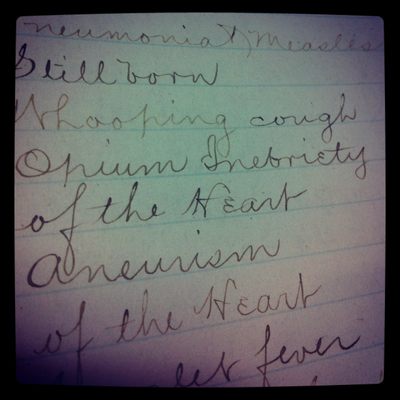 neumonia & Measles
Still born
Whooping cough
Opium Inebriety
of the Heart
Aneurism
of the Heart
let fever